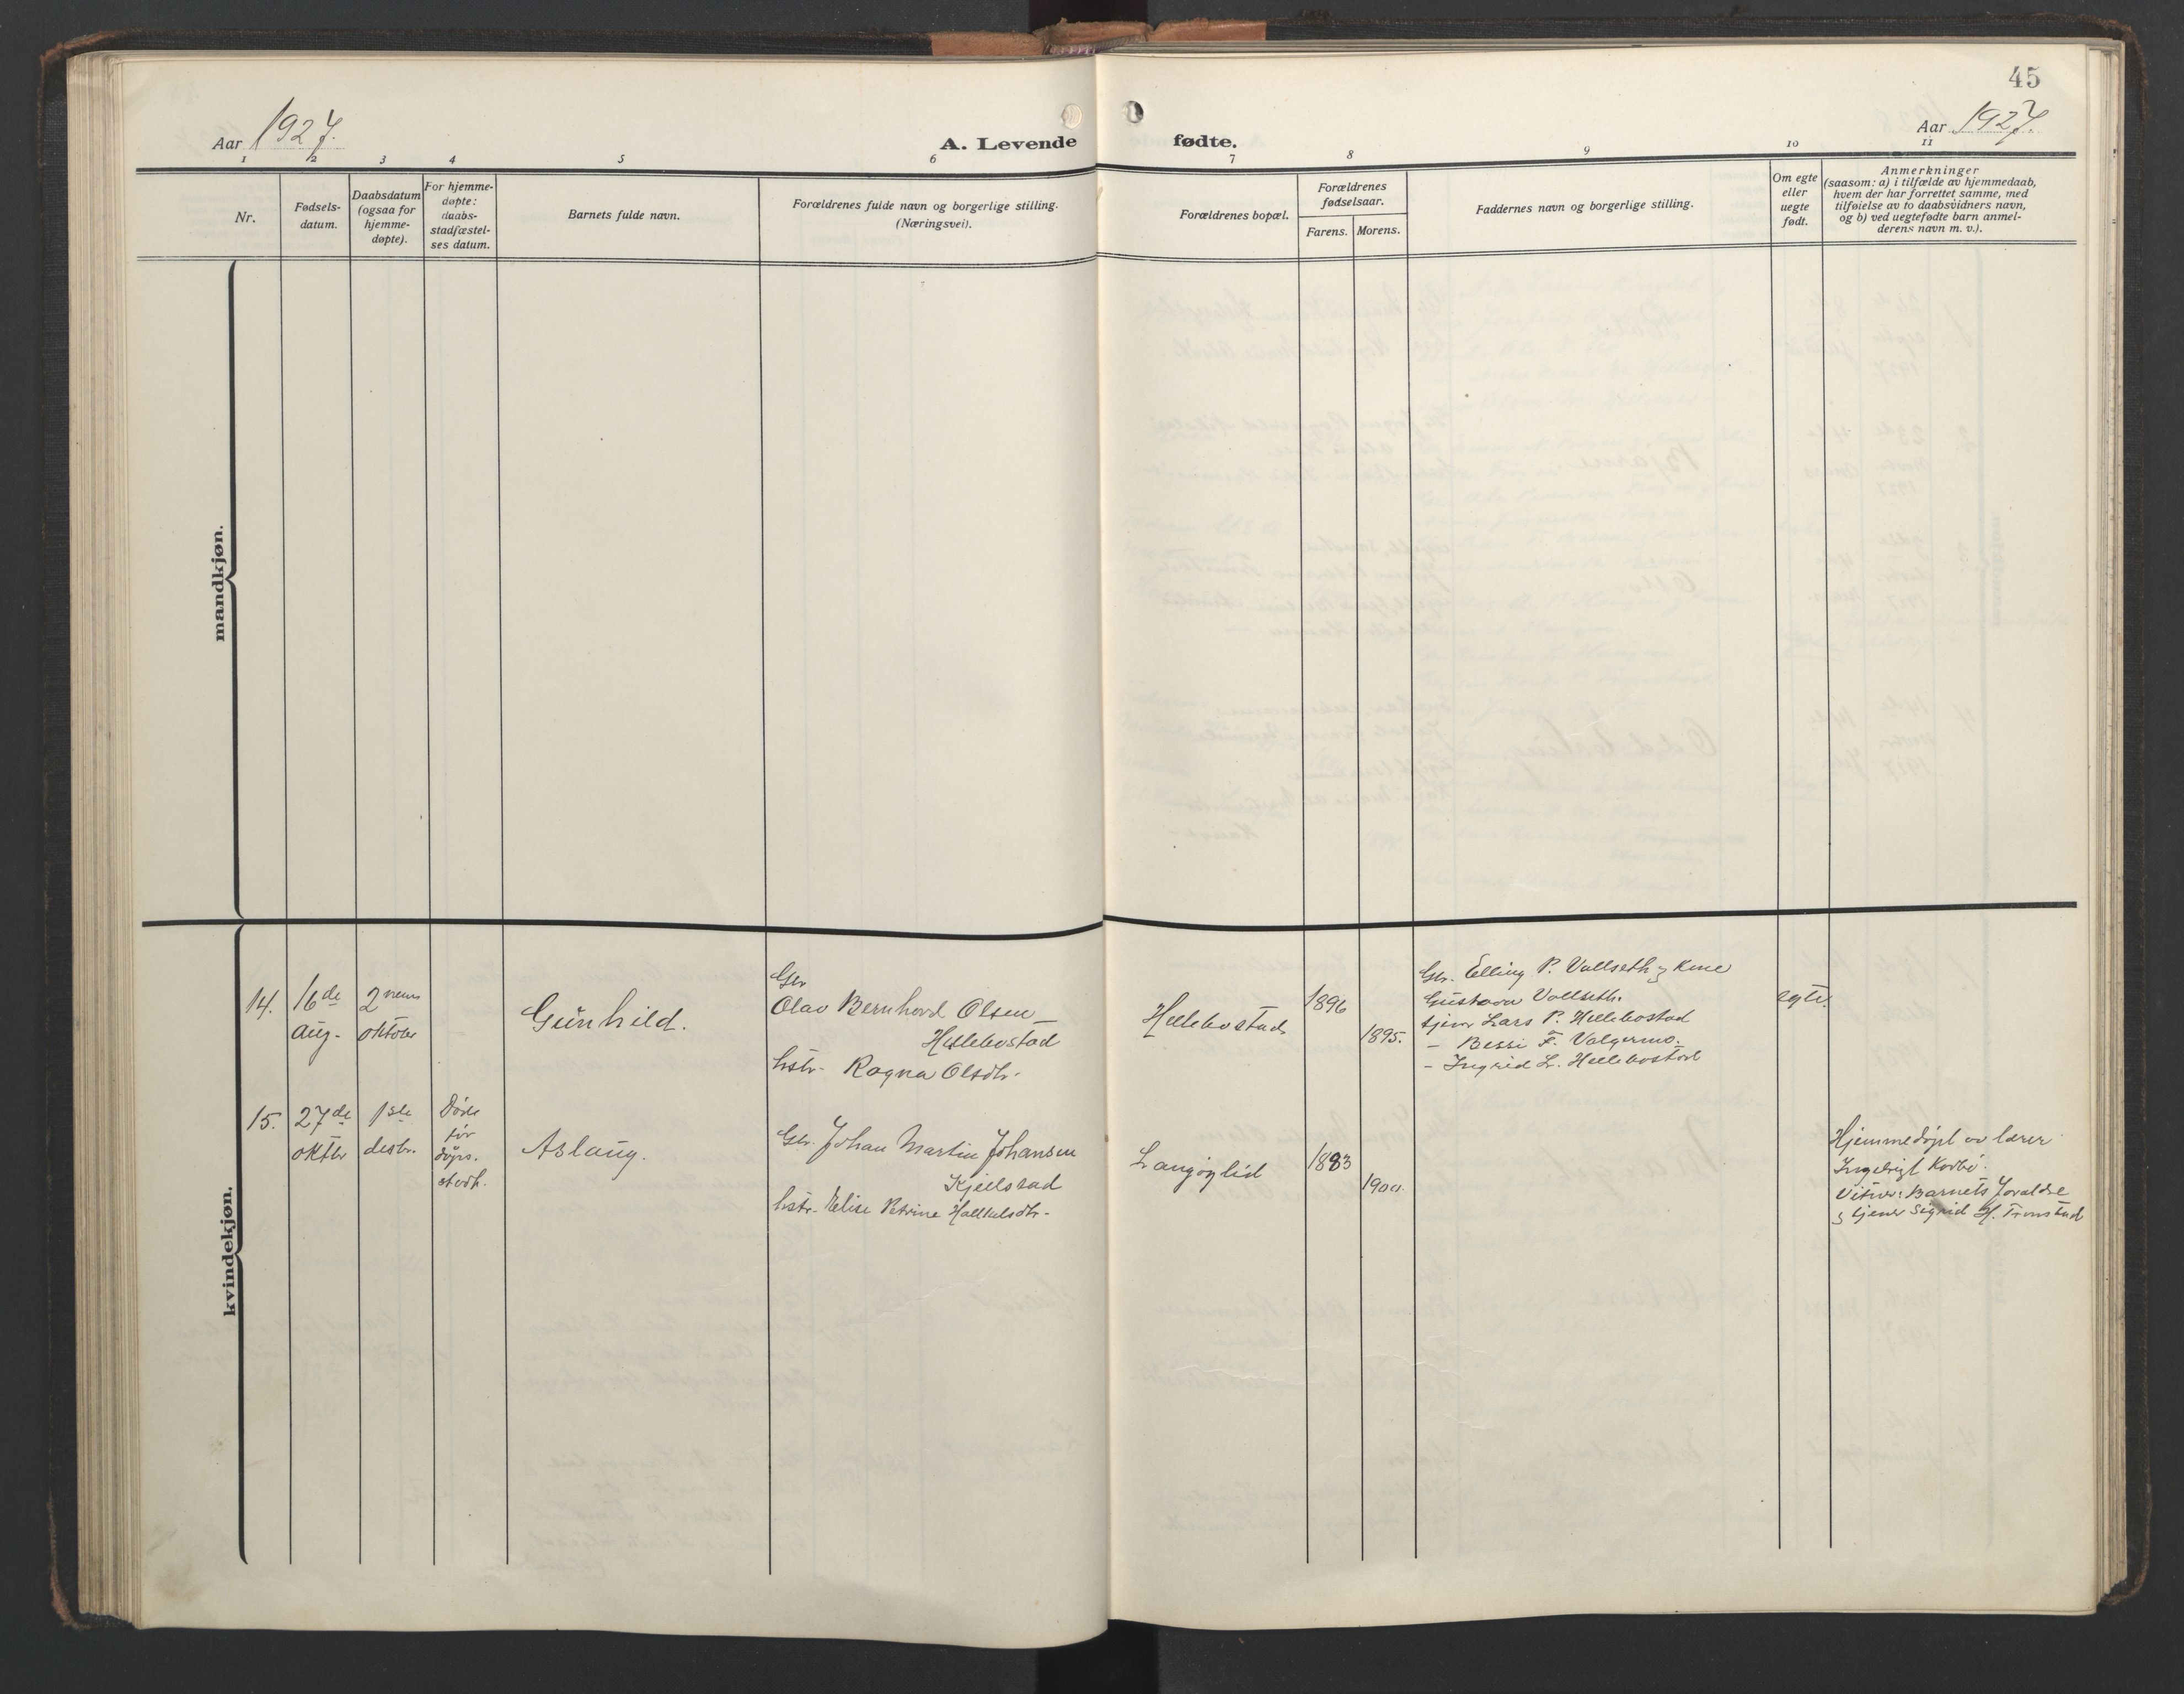 45
Aar 1927.
A. Levende fødte.
Aar 1927.
1 2 3 4 5 6 7 8 9 10 11
Nr.
Fødsels-
datum.
Daabsdatum
(ogsaa for
hjemme-
døpte).
For hjemme-
døpte:
daabs-
stadfæstel-
ses datum.
Barnets fulde navn.
Forældrenes fulde navn og borgerlige stilling.
(Næringsvei).
Forældrenes bopæl.
Forældrenes
fødselsaar.
Farens. Morens.
Faddernes navn og borgerlige stilling.
Om egte
eller
uegte
født.
Anmerkninger
(saasom: a) i tilfælde av hjemmedaab,
hvem der har forrettet samme, med
tilføielse av to daabsvidners navn,
og b) ved uegtefødte barn anmel-
derens navn m. v.).
mandkjøn.
kvindekjøn.
14.
16de
Aug.
2nen
oktober
Gunhild.
Gbr
Olav Bernhard Olsen
Hellebostad
hstr. Ragna Olsdtr.
Hellebostad
1896
1895.
Gbr. Elling P. Vallseth og kone
Gustava Vallseth.
tjener Lars P. Hellebostad
- Bessi F. Valgermo.
- Ingrid L. Hellebostad
egte.
15.
27de
oktbr
1ste
desbr.
Døde
før
døps.
stadf.
Aslaug.
Gbr. Johan Martin Johansen
Kjellstad
hstr. Elise Petrine Hallkelsdtr.
Langøylid
1883
1900.
Hjemmedøpt av lærer
Ingebrigt
Vitner: Barnets Foraldre
og tjener Sigrid H. Tronstad